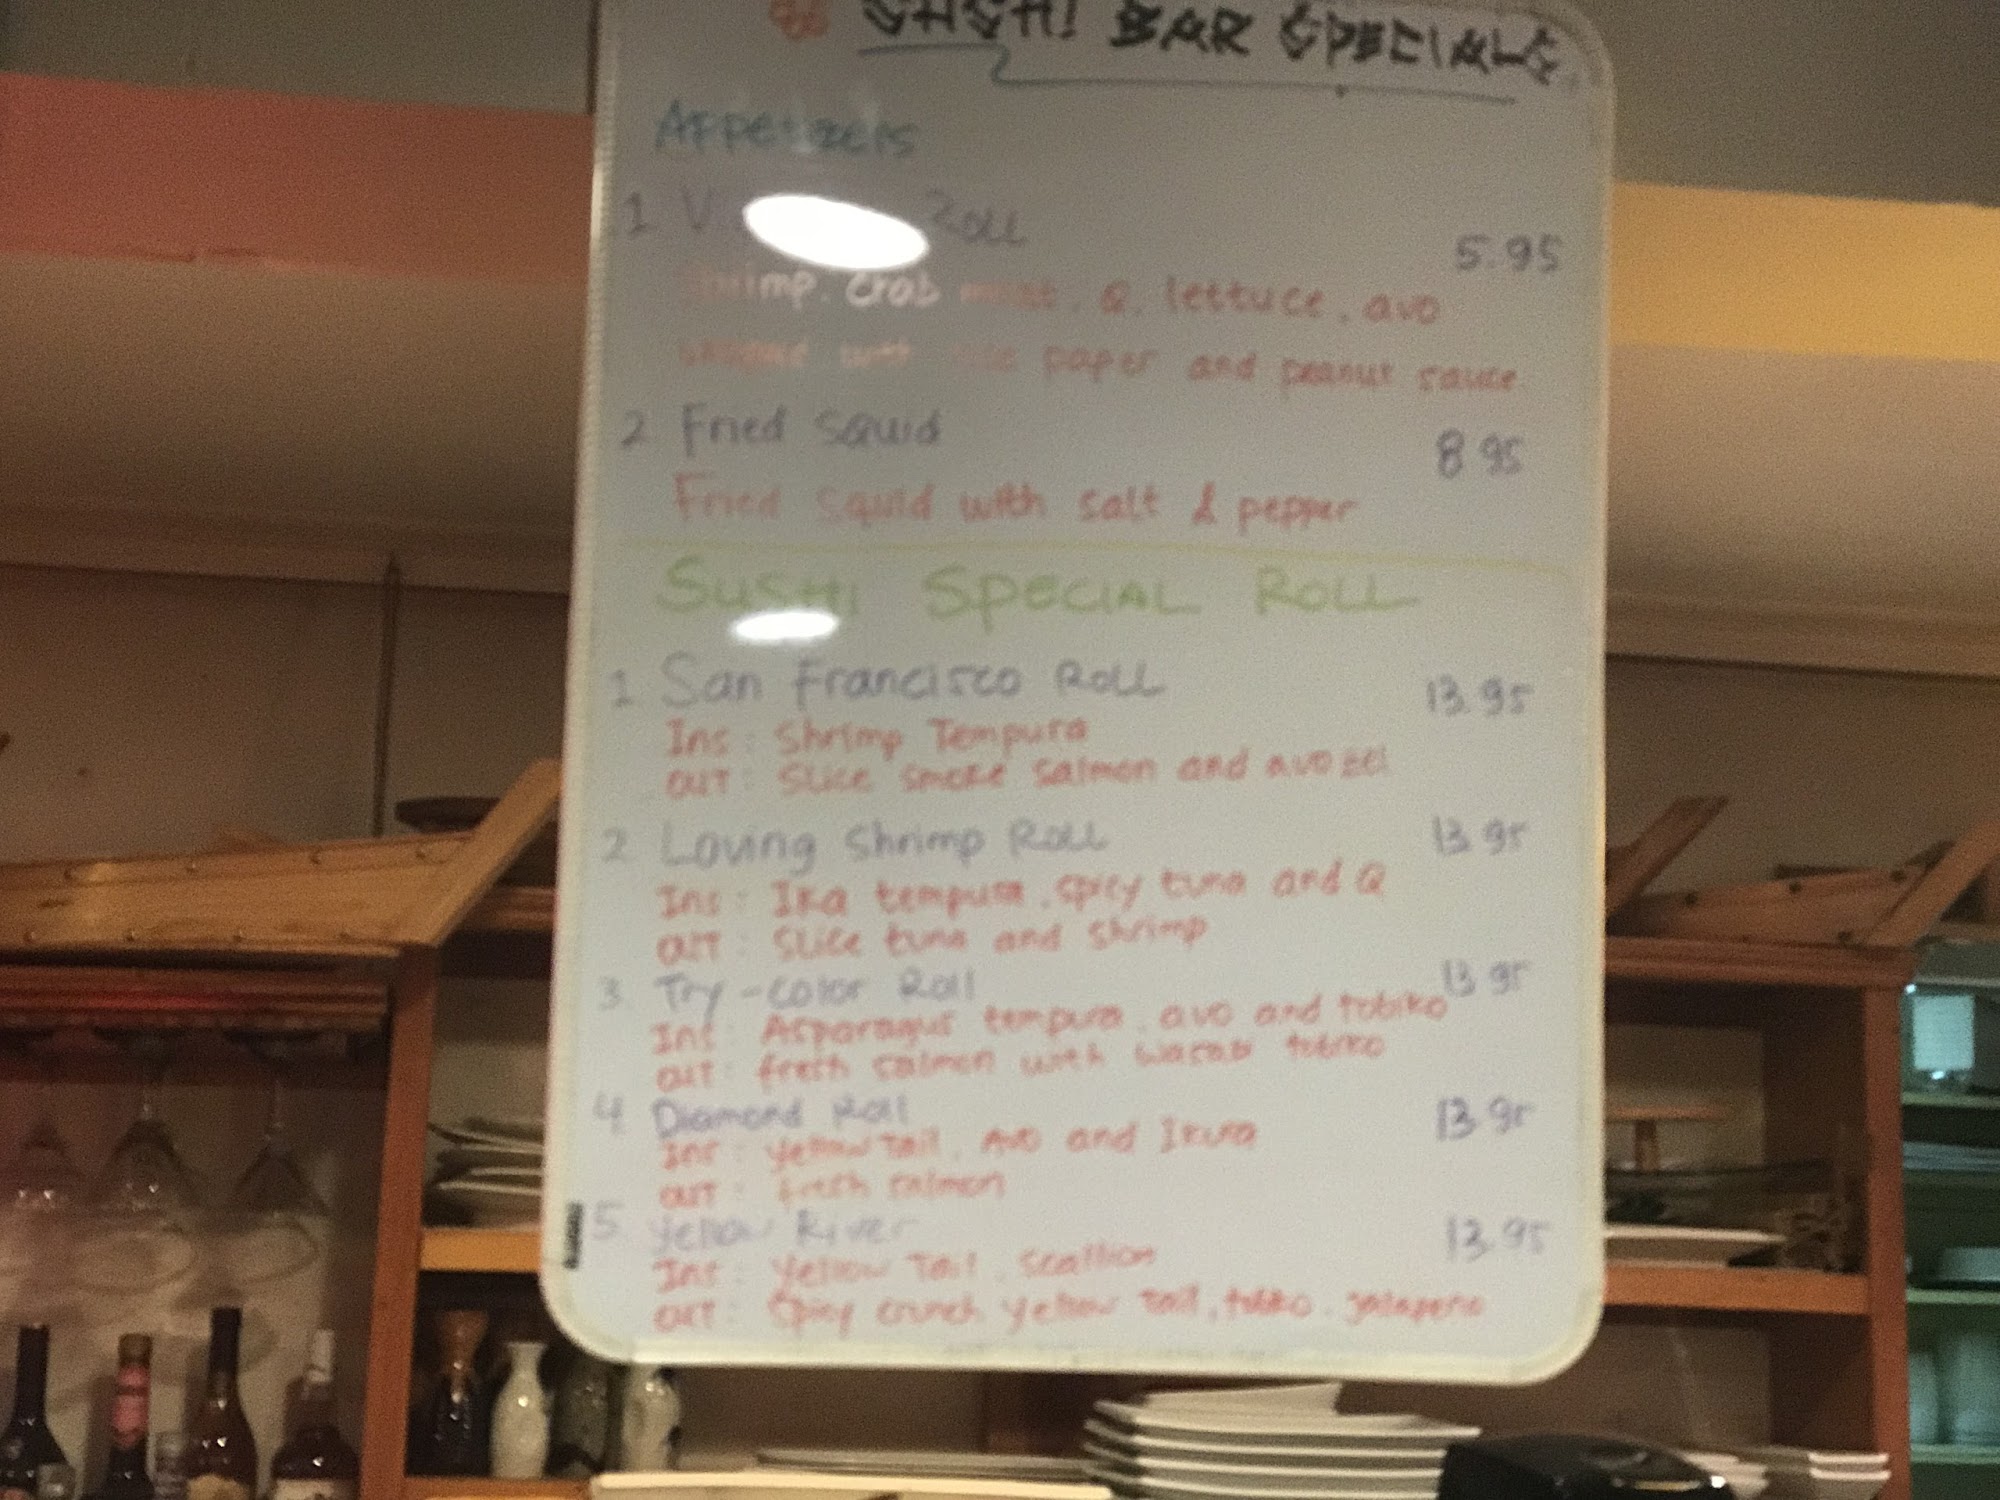 SUSHI BAR SPECIALS
Appetizers
1 Roll 5.95
shrimp. crab meat. Q. lettuce. avo
with rice paper and peanut sauce
2 Fried Squid 8.95
Fried squid with salt & pepper
SUSHI SPECIAL ROLL
1 San Francisco Roll 13.95
Ins: Shrimp Tempura
OUT: Slice smoke salmon and avo
2 Loving Shrimp Roll 13.95
Ins: Ika tempura. spicy tuna and Q
OUT: Slice tuna and shrimp
3. Try-color Roll 13.95
Ins: Asparagus tempura. avo and tobiko
OUT: fresh salmon with wasabi tobiko
4. Diamond Roll 13.95
Ins: yellow Tail. Avo and Ikura
OUT: fresh salmon
5. yellow River 13.95
Ins: yellow Tail. scallion
OUT: Spicy crunch yellow tail, tobiko. jalapeno